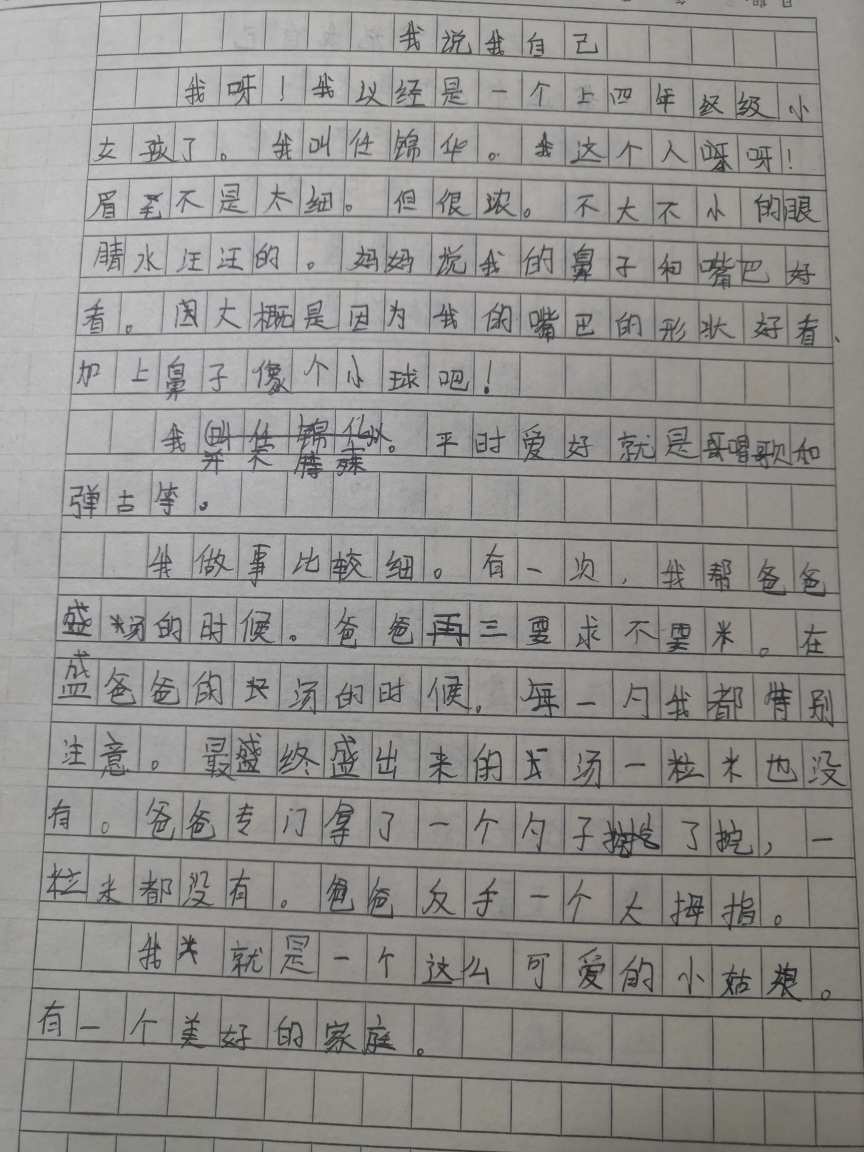 我说我自己
我呀！我以经是一个上四年级小
女孩了。我叫任锦华。我这个人呀！
眉毛不是太细。但很浓。不大不小的眼
睛水汪汪的。妈妈说我的鼻子和嘴巴好
看。大概是因为我的嘴巴的形状好看、
加上鼻子像个小球吧！
我。平时爱好就是唱歌和
弹古筝。
我做事比较细。有一次，我帮爸爸
盛汤的时候。爸爸再三要求不要米。在
盛爸爸的汤的时候。每一勺我都特别
注意。最终盛出来的汤一粒米也没
有。爸爸专门拿了一个勺子了挖，一
粒米都没有。爸爸反手一个大拇指。
我就是一个这么可爱的小姑娘。
有一个美好的家庭。